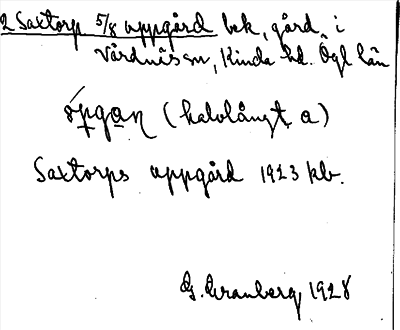 2 Saxtorp 5/8 uppgård bek, gård, i
Vårdnäs sn, Kinda hd. Ögl län
(halvlångt a)
Saxtorps uppgård 1923 kb.
G. Granberg 1928